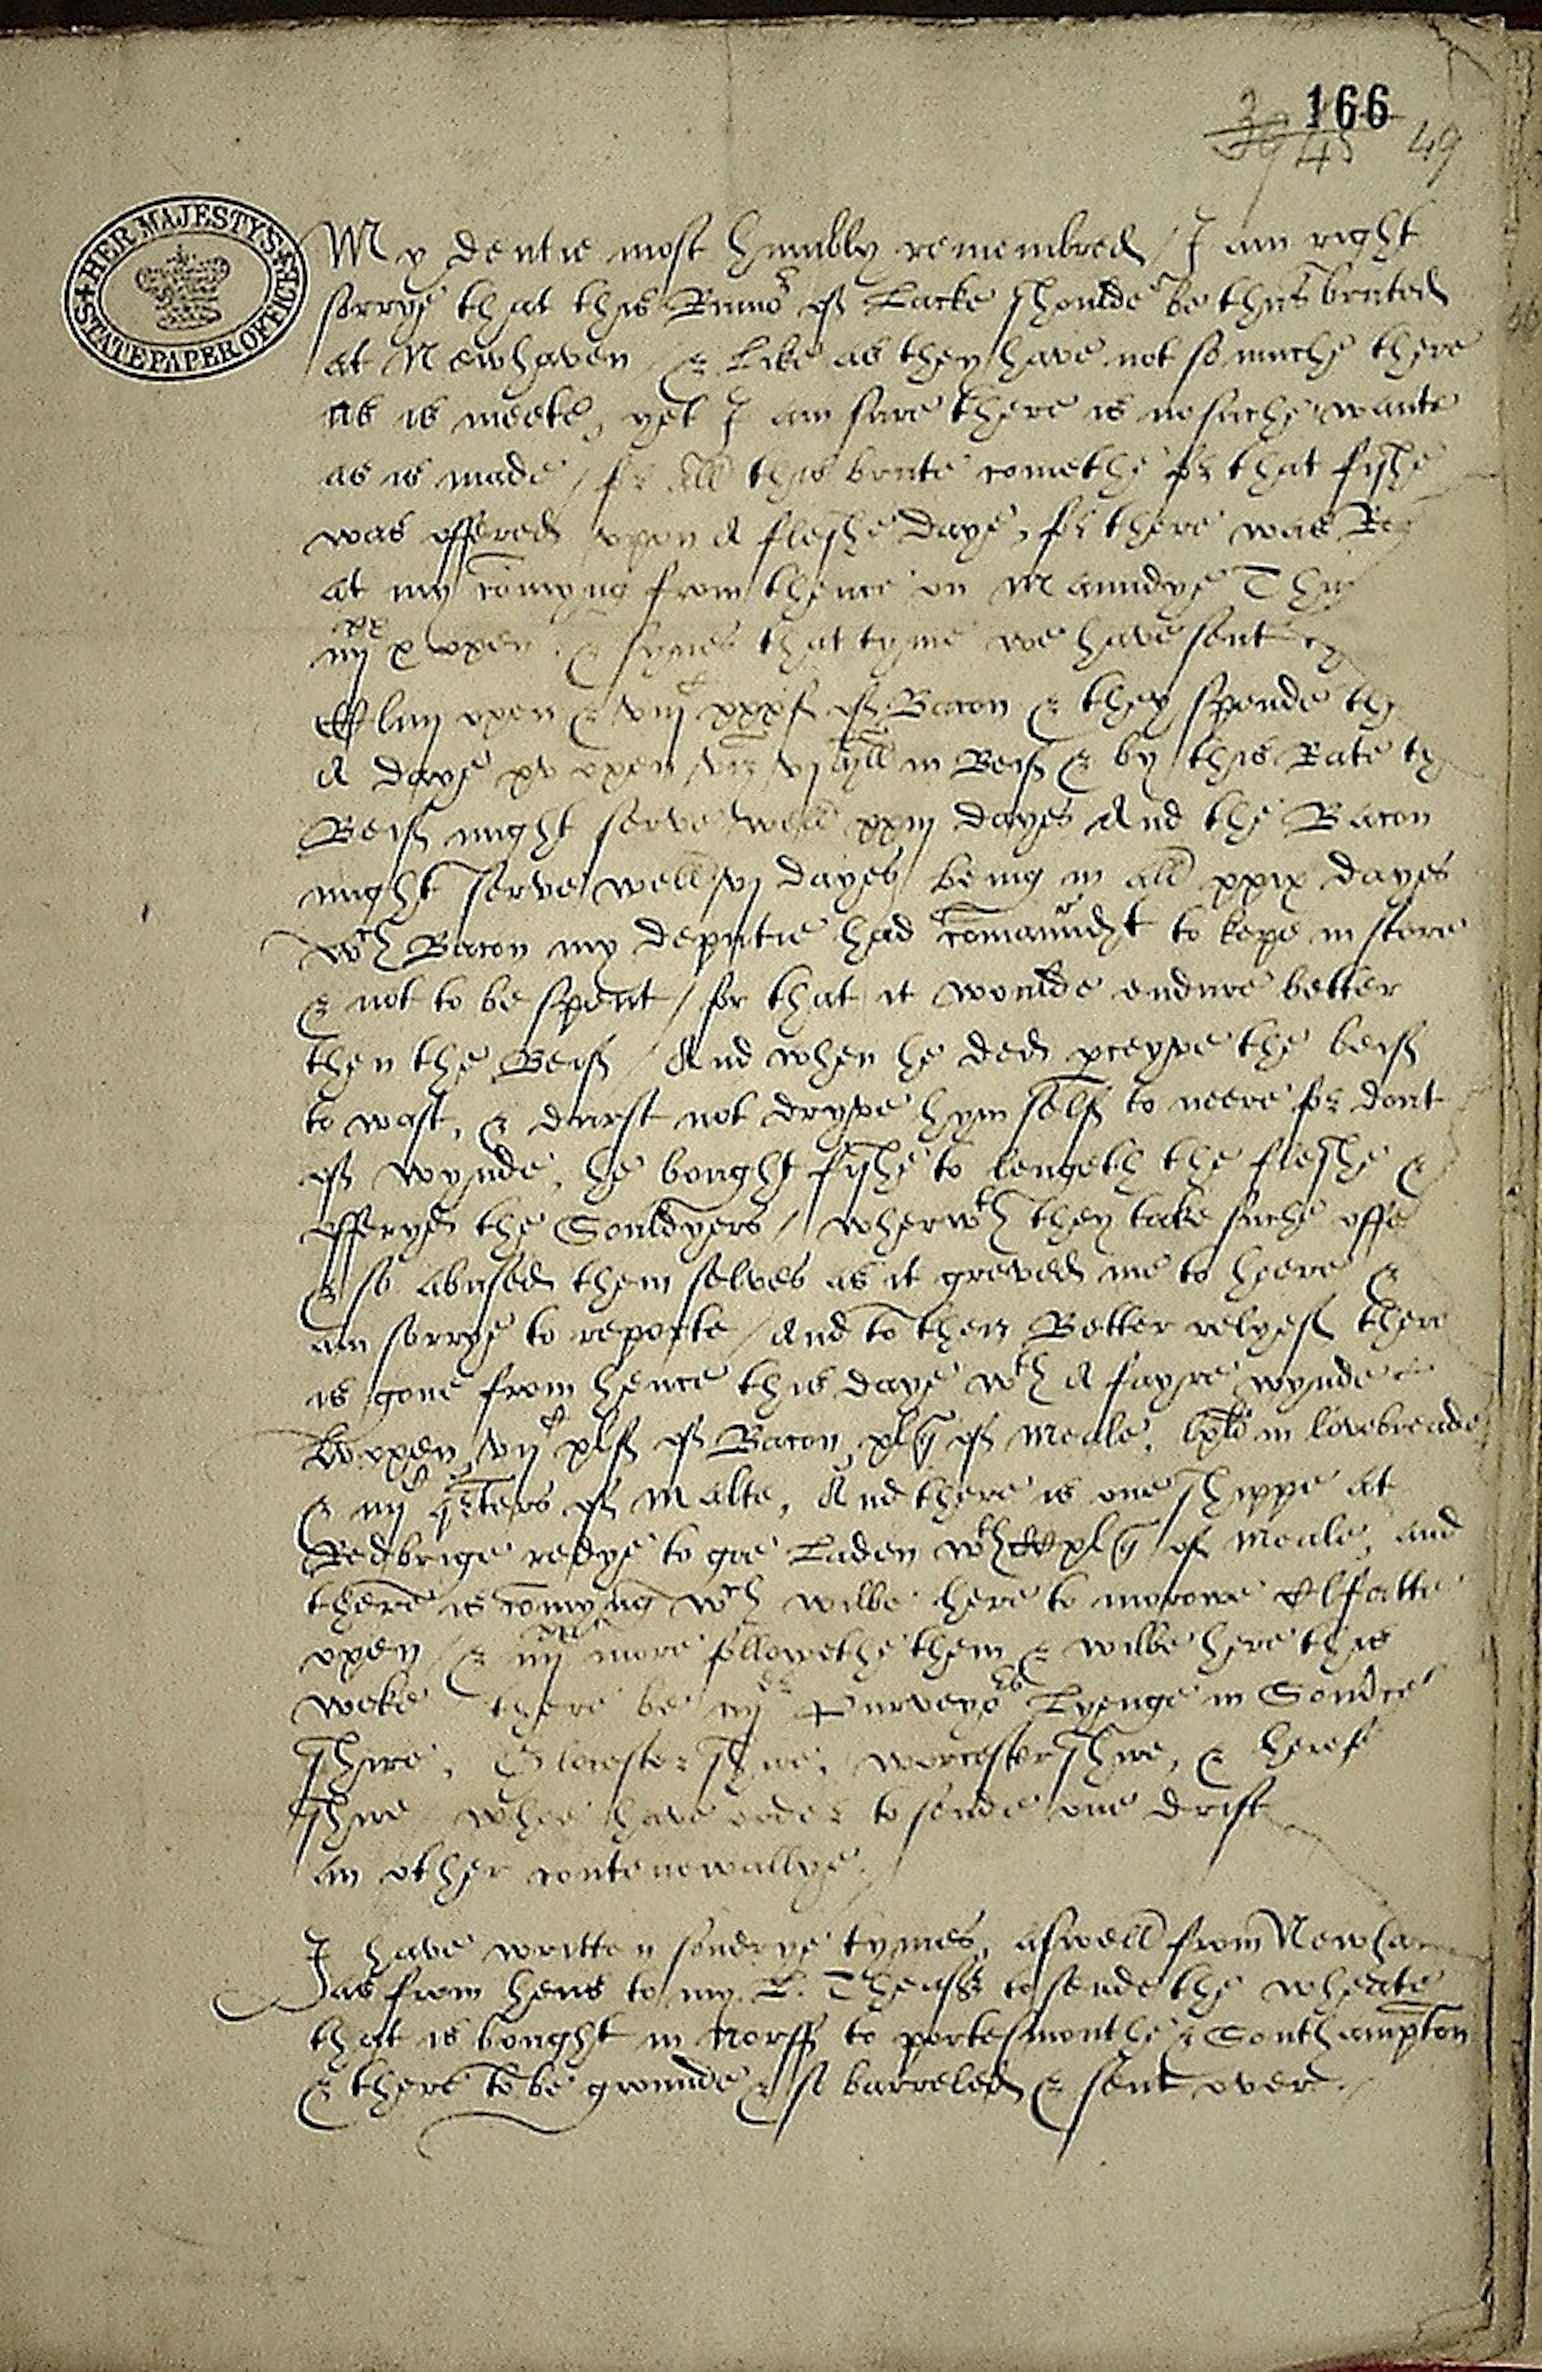 166
39 45 49
HER MAJESTY'S STATE PAPER OFFICE
My deutie most humbly remembred / I am right
sorrye that this Rumor of Lacke shoulde be thus bruted
at Newhaven & Like as they have not so muche there
as is meete, yet I am sure there is no suche wante
as is made / for all this brute comethe for that fyshe
was offered upon A fleshe daye, for there was
at my comyng from thence on Maundye
iiij xx x oxen & synes that tyme we have sent
liiij oxen & viij xxx of Bacon & they spende
A daye xv oxen viz vj in Beif & by this Rate
Beif might serve well xxiij dayes And the Bacon
might serve well vj dayes being in all xxix dayes
wch Bacon my deputie had comaundmt to kepe in store
& not to be spent / for that it woulde endure better
then the Beif / And when he ded pceyve the beif
to wast, & durst not dryve hym self to neere for dout
of wynde, he bought fyshe to lengeth the fleshe &
offeryd the Souldyers / wherwth they take suche
& so abused them selves as it greved me to heere &
am sorrye to reporte / And to their Better relyef there
is gone from hence this daye wth A fayre wynde
oxen vij of Bacon of Meale, in lovebreade
& iiij qrters of Malte, And there is one shippe at
Redbrige redye to goe Laden wth of Meale, and
there is comyng wch wilbe here to morowe fatte
oxen / & iiij xx more followethe them & wilbe here this
weke there be iiij Purveyors Lyenge in
shire, Glocester shire, worcester shire, & heref
shire whoe have order to sende one drift
an other contenewallye.
I have written sondrye tymes, aswell from
as from hens to my L. to sende the wheate
that is bought in Norff to portesmouthe & Southampton
& there to be grounde & so barreled & sent over.